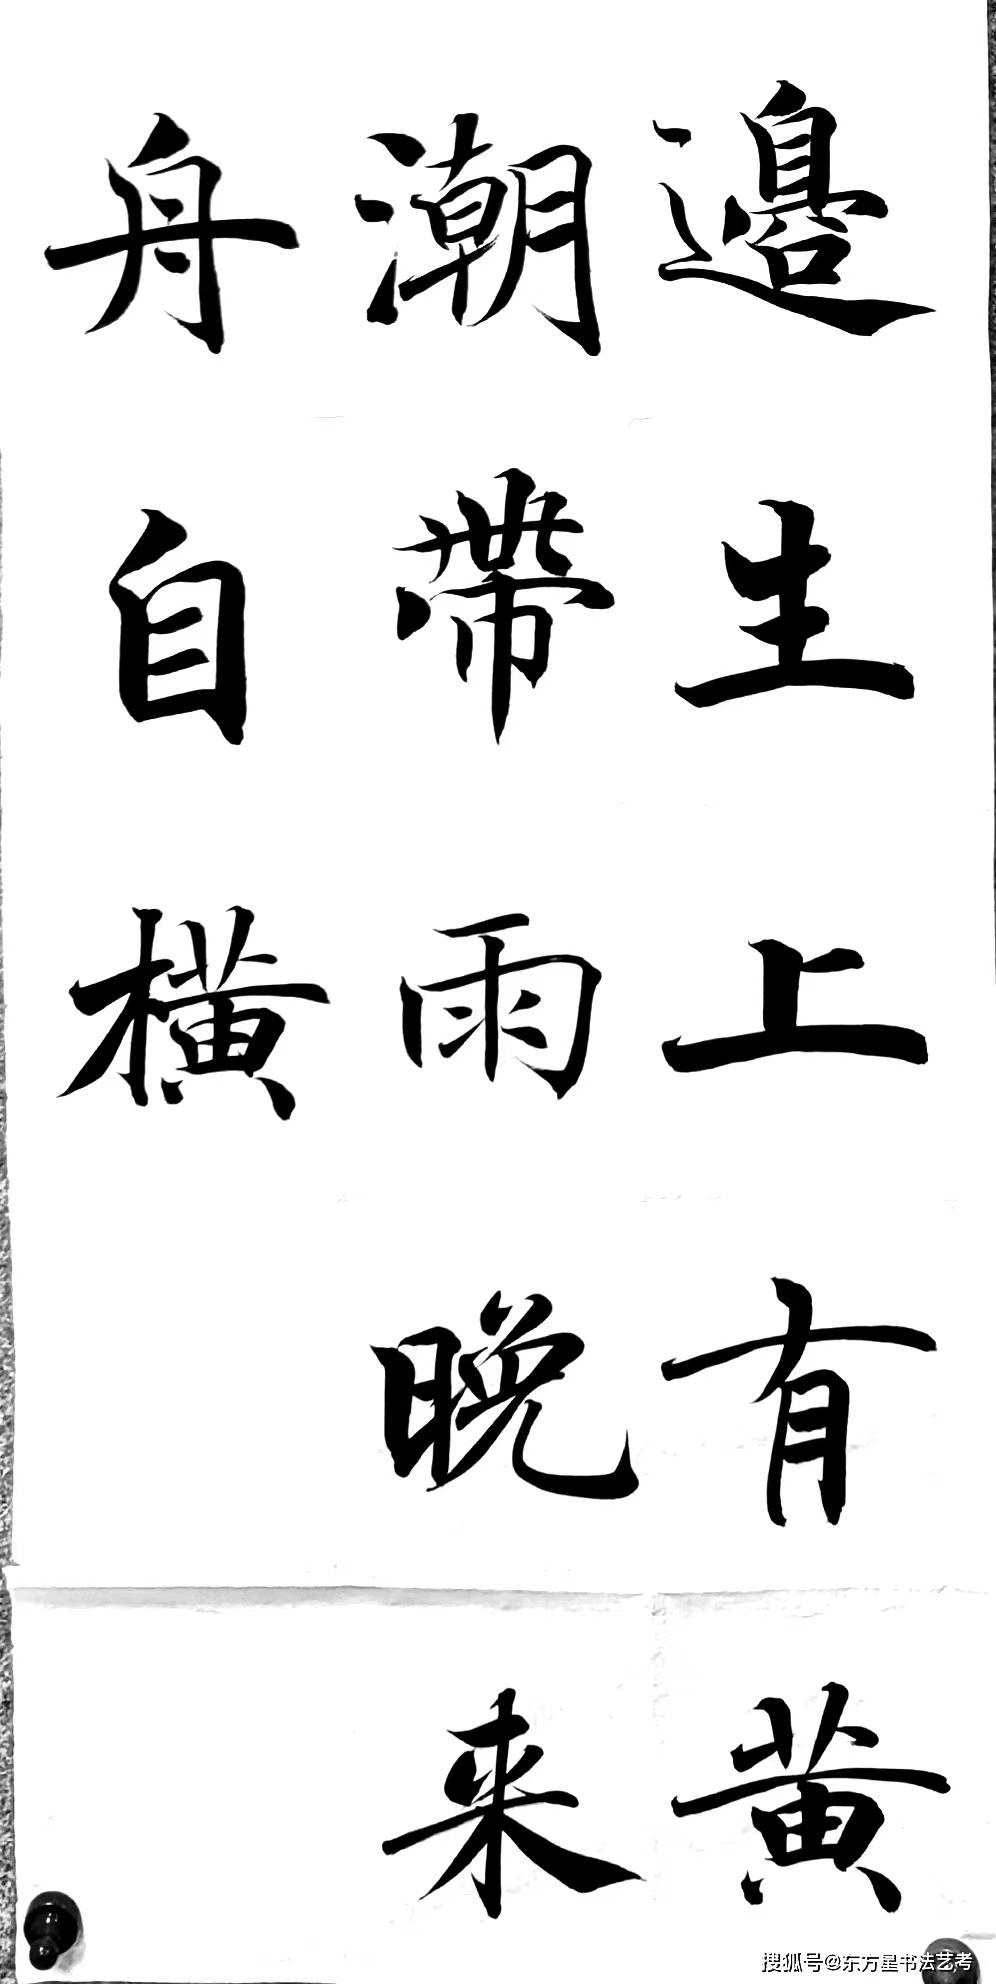 邉生上有黄
潮帶雨晚来
舟自横
搜狐号@东方星书法艺考